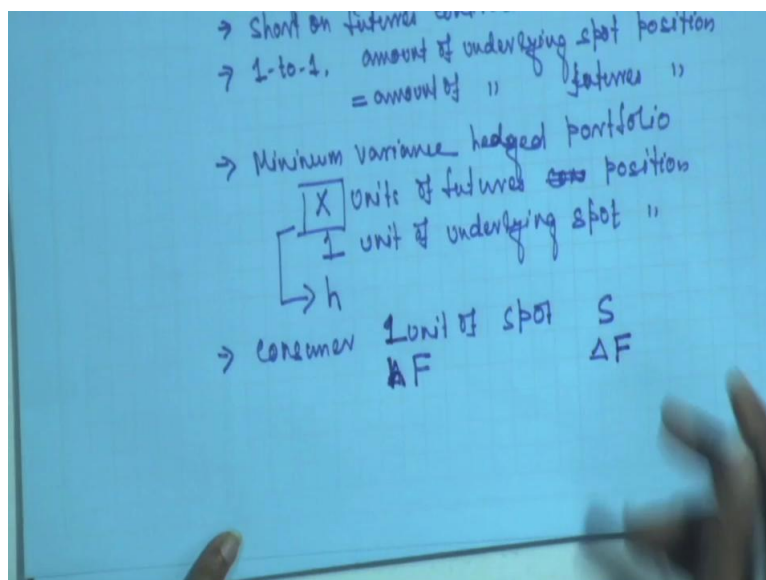 → Short on futures
→ 1-to-1. amount of underlying spot position
= amount of " futures "
→ Mininum variance hedged portfolio
X units of futures position
1 unit of underlying spot "
→ h
→ consumer 1 unit of spot S
h F ΔF